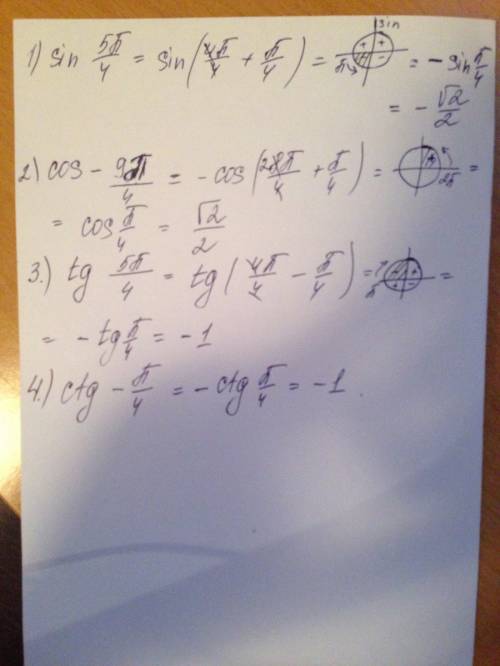 1) sin 5π/4 = sin(4π/4 + π/4) = sin + + π - = - sin π/4
= - √2/2
2) cos - 9π/4 = - cos(28π/4 + π/4) = 2π =
= cos π/4 = √2/2
3.) tg 5π/4 = tg(4π/4 - π/4) = π =
= - tg π/4 = - 1
4.) ctg - π/4 = - ctg π/4 = - 1.